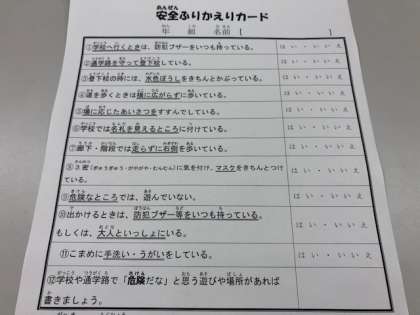 安全ふりかえりカード
年 組 名前 [ ]
①学校へ行くときは、防犯ブザーをいつも持っている。 はい・いいえ
②通学路を守って登下校している。 はい・いいえ
③登下校の時には、水色ぼうしをきちんとかぶっている。 はい・いいえ
④道を歩くときは横に広がらずに歩いている。 はい・いいえ
⑤場に応じたあいさつをすすんでしている。 はい・いいえ
⑥学校では名札を見えるところに付けている。 はい・いいえ
⑦廊下・階段では走らずに右側を歩いている。 はい・いいえ
⑧3密(ぎゅうぎゅう・がやがや・むんむん)に気を付け、マスクをきちんとつけ はい・いいえ
ている。
⑨危険なところでは、遊んでいない。 はい・いいえ
⑩出かけるときは、防犯ブザー等をいつも持っている。 はい・いいえ
もしくは、大人といっしょにいる。
⑪こまめに手洗い・うがいをしている。 はい・いいえ
⑫学校や通学路で「危険だな」と思う遊びや場所があれば
書きましょう。